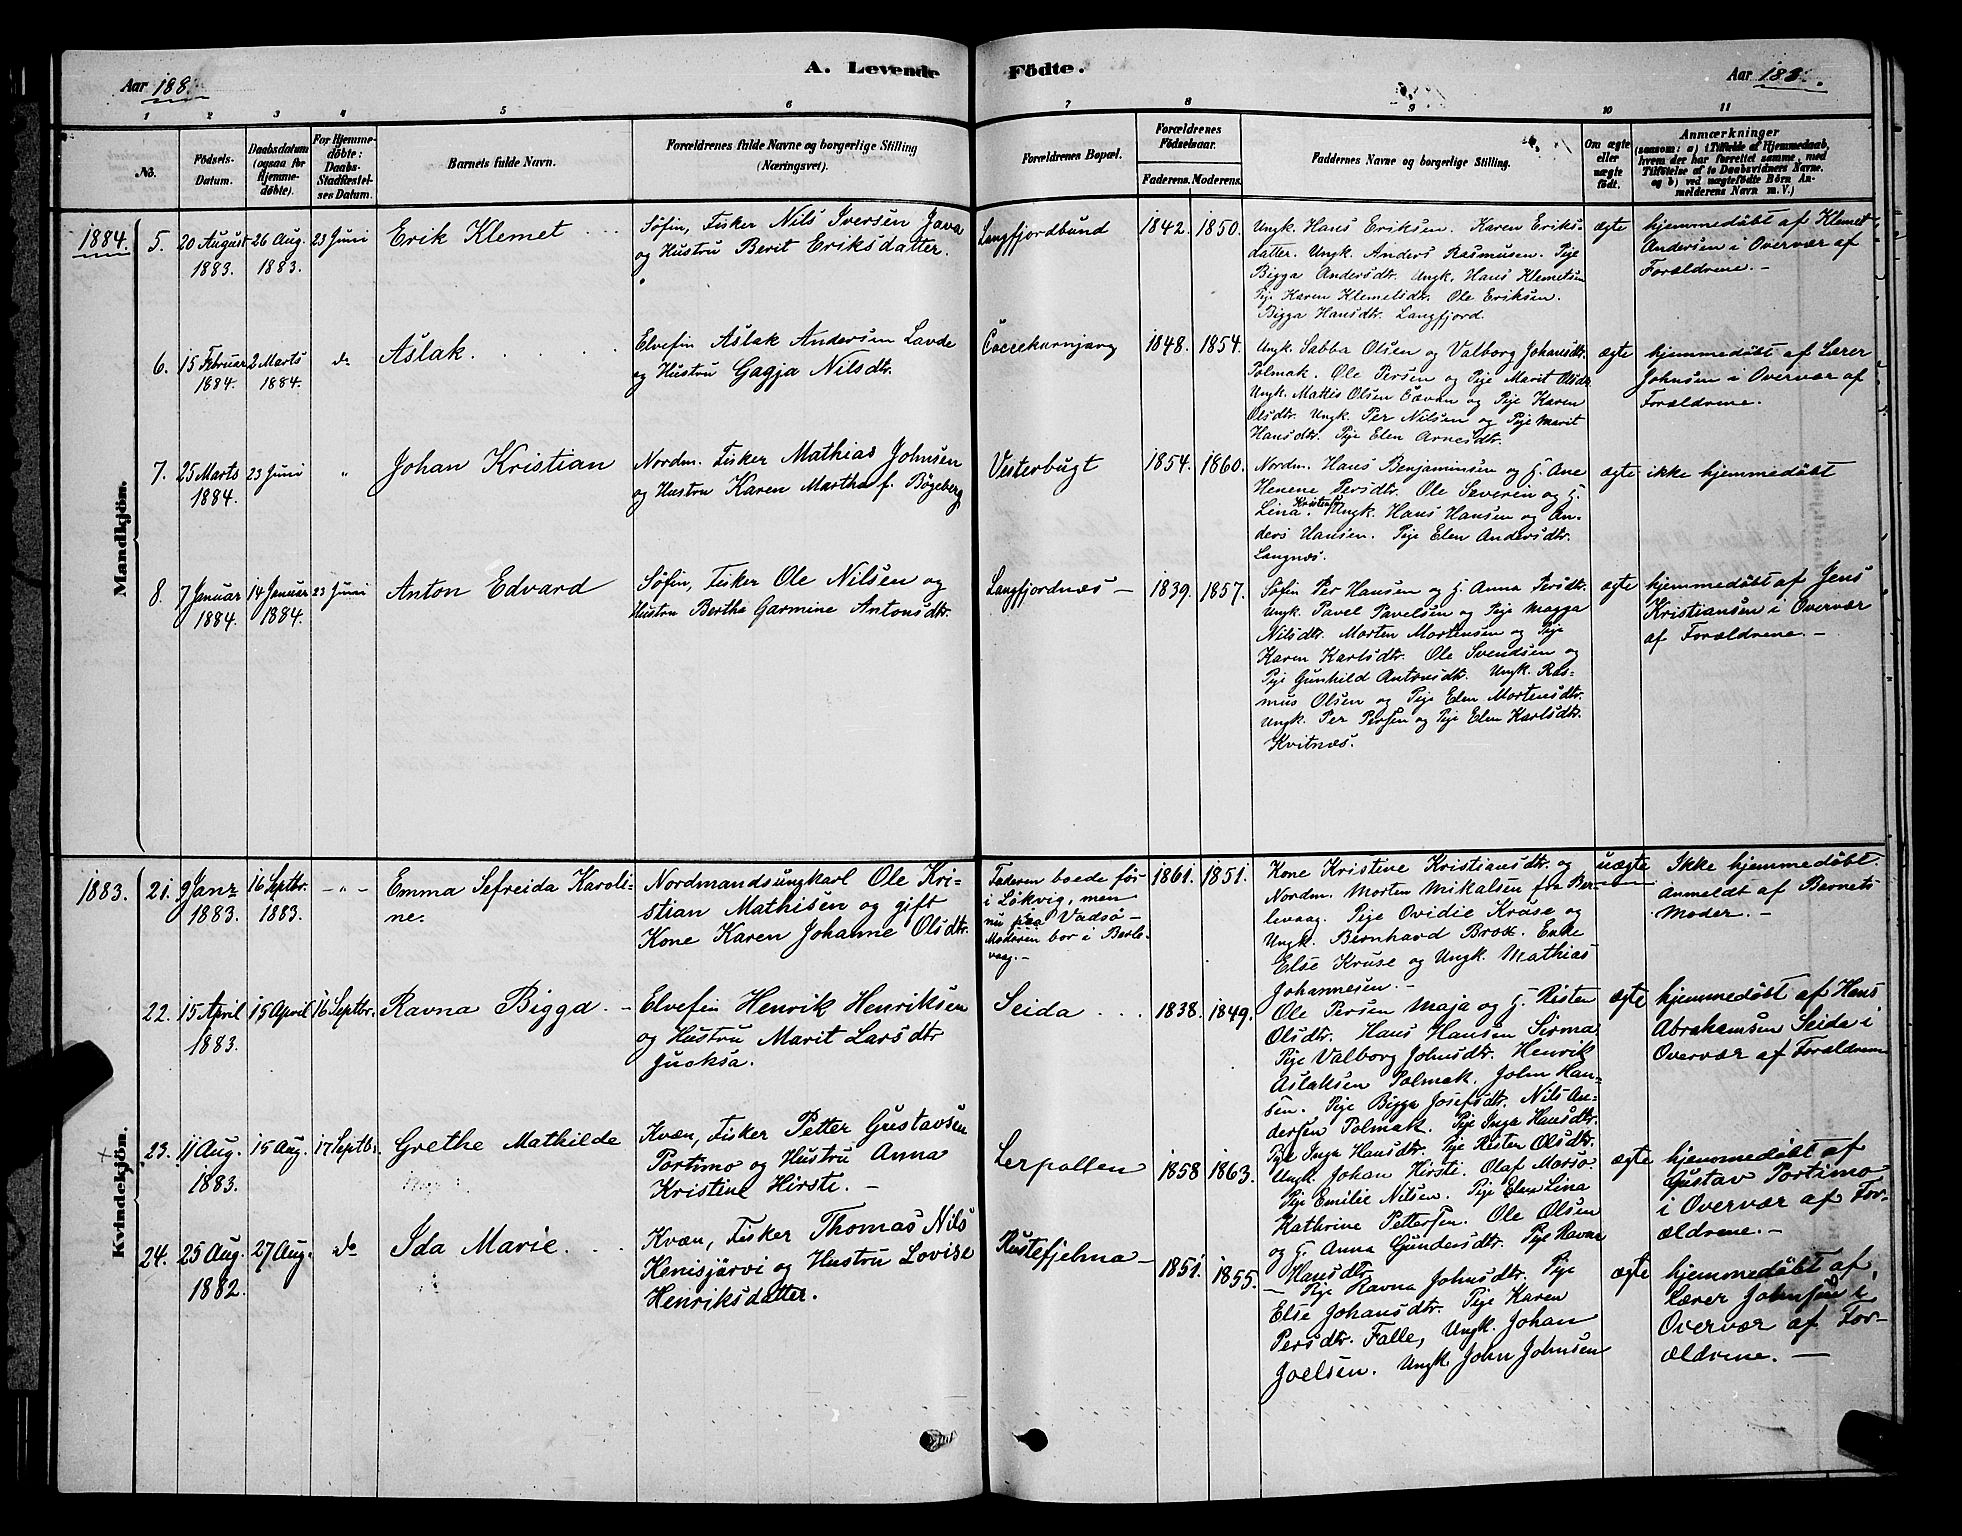 A. Levende Födte.
Aar 188
Aar 188
1 2 3 4 5 6 7 8 9 10 11
No.
Födsels-
Datum.
Daabsdatum
(ogsaa for
Hjemme-
döbte).
For Hjemme-
döbte:
Daabs-
Stadfæstel-
ses Datum.
Barnets fulde Navn.
Forældrenes fulde Navne og borgerlige Stilling
(Næringsvei).
Forældrenes Bopæl.
Forældrenes
Födselsaar.
Faderens. Moderens.
Faddernes Navne og borgerlige Stilling.
Om ægte
eller
uægte
födt.
Anmærkninger
(saasom: a) i Tilfælde af Hjemmedaab,
hvem der har forrettet samme, med
Tilföielse af to Daabsvidners Navne,
og b) ved uægtefödte Börn An-
melderens Navn m. V.)
Mandkjön.
1884.
5.
20 August
1883.
26 Aug.
1883.
23 Juni
Erik Klemet
Søfin, Fisker Nils Iversen Java
og Hustru Berit Eriksdatter.
Langfjordbund
1842. 1850.
Ungk. Hans Eriksen. Karen Eriks-
datter. Ungk. Anders Rasmusen. Pije
Bigga Andersdt. Ungk. Hans Klemetsen
Pije Karen Klemetsdtr. Ole Eriksen.
Bigga Hansdtr. Langfjord.
ægte
hjemmedøbt af Klemet
Andersen i Overvær af
Forældrene. -
6.
15 Februar
1884.
2 Marts
1884.
do
Aslak.
Elvefin Aslak Andersen Lavde
og Hustru Gagja Nilsdtr.
1848. 1854.
Ungk. Sabba Olsen og Valborg Johansdtr.
Polmak. Ole Persen og Pije Marit Olsdtr
Ungk. Mattis Olsen og Pije Karen
Olsdtr. Ungk. Per Nilsen og Pije Marit
Hansdtr. Pije Elen Arnesdtr.
ægte
hjemmedøbt af Lærer
Johnsen i Overvær af
Forældrene.
7.
25 Marts
1884.
23 Juni
"
Johan Kristian
Nordm. Fisker Mathias Johnsen
og Hustru Karen Martha f. Bøgeberg
Vesterbugt
1854. 1860.
Nordm. Hans Benjaminsen og G. Ane
Henene Persdtr. Ole Severin og G.
Lina Kristens. Ungk. Hans Hansen og An-
ders Hansen. Pije Elen Andersdtr.
Langnæs.
ægte
ikke hjemmedøbt
8.
7 Januar
1884.
14 Januar
1884.
23 Juni
Anton Edvard
Søfin, Fisker Ole Nilsen og
Hustru Berthe Garmine Antonsdtr.
Langfjordnæs -
1839. 1857.
Søfin Per Hansen og G. Anna Persdtr.
Ungk. Pavel Pavelsen og Pije Magga
Nilsdtr. Morten Mortensen og Pije
Karen Karlsdtr. Ole Svendsen og
Pije Gunhild Antonsdtr. Ungk. Ras-
mus Olsen og Pije Elen Mortensdtr.
Ungk. Per Persen og Pije Elen Karlsdtr.
Kvitnæs.
ægte
hjemmedøbt af Jens
Kristiansen i Overvær
af Forældrene. -
Kvindekjön.
1883.
21.
9 Janr
1883.
16 Septbr.
1883.
- " -
Emma Sefreida Karoli-
ne.
Nordmandsungkarl Ole Kri-
stian Mathisen og gift
Kone Karen Johanne Olsdtr.
Faderen boede før
i Løkvig, men
nu paa Vadsø -
Moderen bor i Berle-
vaag. -
1861. 1851.
Kone Kristine Kristiansdtr. og
Nordm. Morten Mikalsen fra Ber-
levaag. Pije Ovidie Kruse og
Ungk. Bernhard Brox. Enke
Else Kruse og Ungk. Mathias
Johannesen. -
uægte
Ikke hjemmedøbt.
Anmeldt af Barnets
Moder. -
22.
15 April
1883.
15 April
16 Septbr.
Ravna Bigga -
Elvefin Henrik Henriksen
og Hustru Marit Larsdtr
Juoksa.
Seida
1838. 1849.
Ole Persen Maja og G. Risten
Olsdtr. Hans Hansen Sirma
Pije Valborg Johnsdtr. Henrik
Aslaksen Polmak. John Han-
sen. Pije Bigga Josefsdtr. Nils An-
dersen Polmak. Pije Inga Hansdtr.
Pije Inga Hansdtr. Pije Risten Olsdtr.
ægte
hjemmedøbt af Hans
Abrahamsen Seida i
Overvær af Forældrene
23.
11 Aug.
1883.
15 Aug.
17 Septbr.
Grethe Mathilde
Kvæn, Fisker Petter Gustavsen
Portimo og Hustru Anna
Kristine Hirsti. -
Lerpollen
1858 1863.
Ungk. Johan Hirsti. Olaf Morsø
Pije Emilie Nilsen. Pije Elen Lina
Kathrine Pettersen. Ole Olsen
og G. Anna Gundersdtr. Pije Ravna
Hansdtr.
ægte
hjemmedøbt af
Gustav Portimo
i Overvær af For-
ældrene. -
24.
25 Aug.
1882.
27 Aug.
do
Ida Marie.
Kvæn, Fisker Thomas Nils
Kenisjärvi og Hustru Lovise
Henriksdatter.
Rustefjelma -
1851. 1855.
- Pije Ravna Johnsdtr. Pije
Else Johansdtr. Pije Karen
Persdtr. Falle, Ungk. Johan
Joelsen. Ungk. John Johnsen
ægte
hjemmedøbt af
Lærer Johnsen i
Overvær af For-
ældrene. -